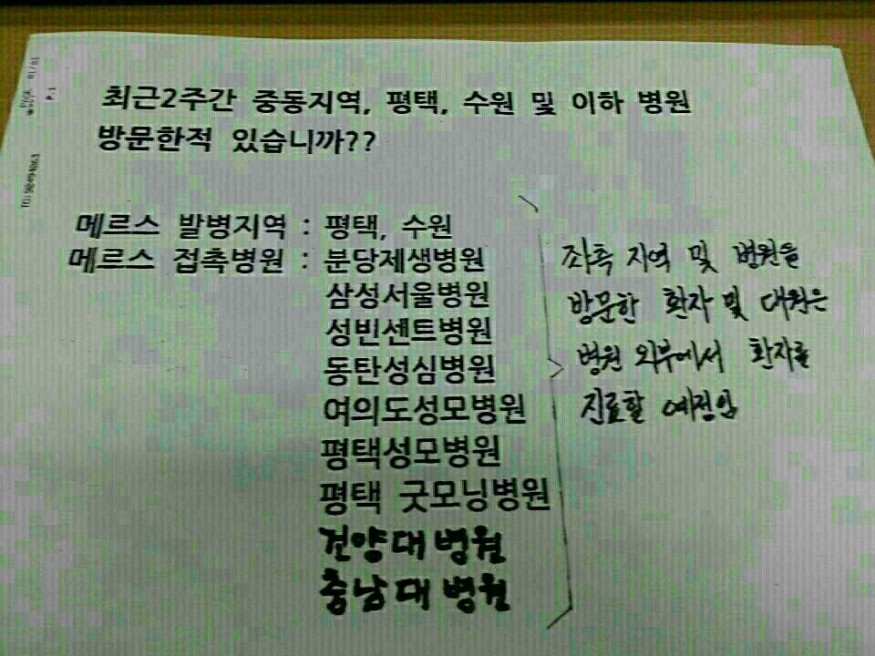 최근2주간 중동지역, 평택, 수원 및 이하 병원
방문한적 있습니까??
메르스 발병지역 : 평택, 수원
메르스 접촉병원 : 분당제생병원
삼성서울병원
성빈센트병원
동탄성심병원
여의도성모병원
평택성모병원
평택 굿모닝병원
건양대병원
충남대병원
좌측 지역 및 병원을
방문한 환자 및 대원은
병원 외부에서 환자를
진료할 예정임